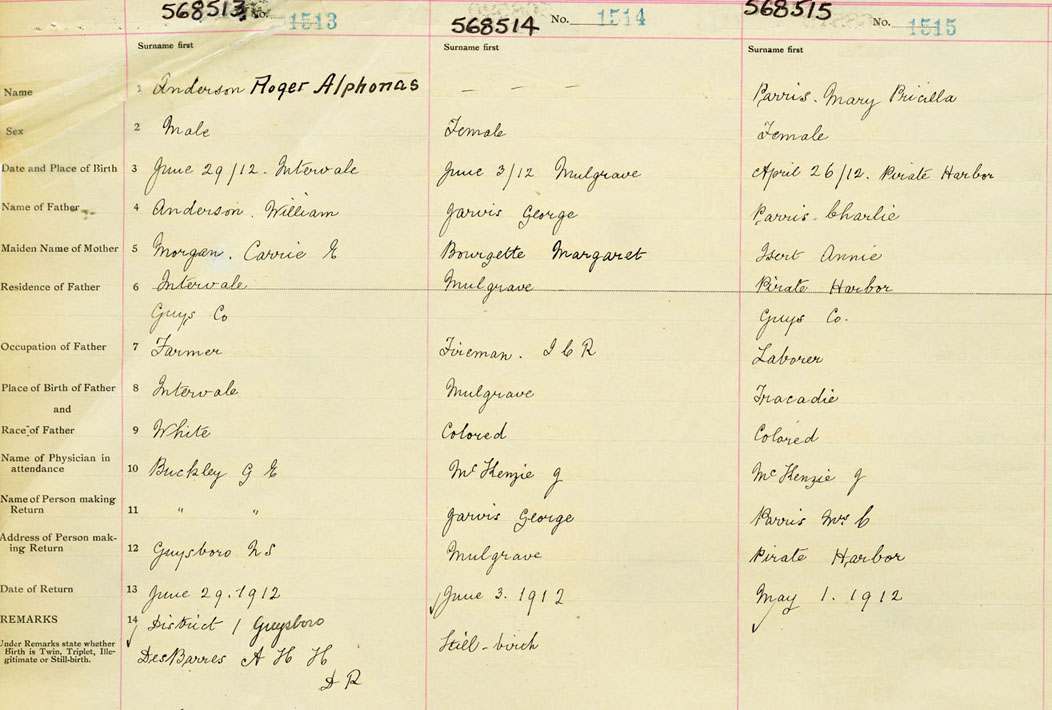 568513 No. 1513
568514 No. 1514
568515 No. 1515
Surname first
Surname first
Surname first
Name 1 Anderson Roger Alphonas
— — —
Parris. Mary Pricilla
Sex 2 Male
Female
Female
Date and Place of Birth 3 June 29/12. Intervale
June 3/12 Mulgrave
April 26/12. Pirate Harbor
Name of Father 4 Anderson. William
Jarvis George
Parris. Charlie
Maiden Name of Mother 5 Morgan. Carrie E
Bourgette Margaret
Annie
Residence of Father 6 Intervale
Mulgrave
Pirate Harbor
Guys Co
Guys Co.
Occupation of Father 7 Farmer
Fireman. I C R
Laborer
Place of Birth of Father 8 Intervale
Mulgrave
Tracadie
and
Race of Father 9 White
Colored
Colored
Name of Physician in
attendance 10 Buckley G E
McKenzie J
McKenzie J
Name of Person making
Return 11 " "
Jarvis George
Parris Mrs C
Address of Person mak-
ing Return 12 Guysboro N S
Mulgrave
Pirate Harbor
Date of Return 13 June 29. 1912
June 3. 1912
May 1. 1912
REMARKS 14 District 1 Guysboro
Under Remarks state whether
Birth is Twin, Triplet, Ille-
gitimate or Still-birth.
DesBarres A H H
D R
Still-birth